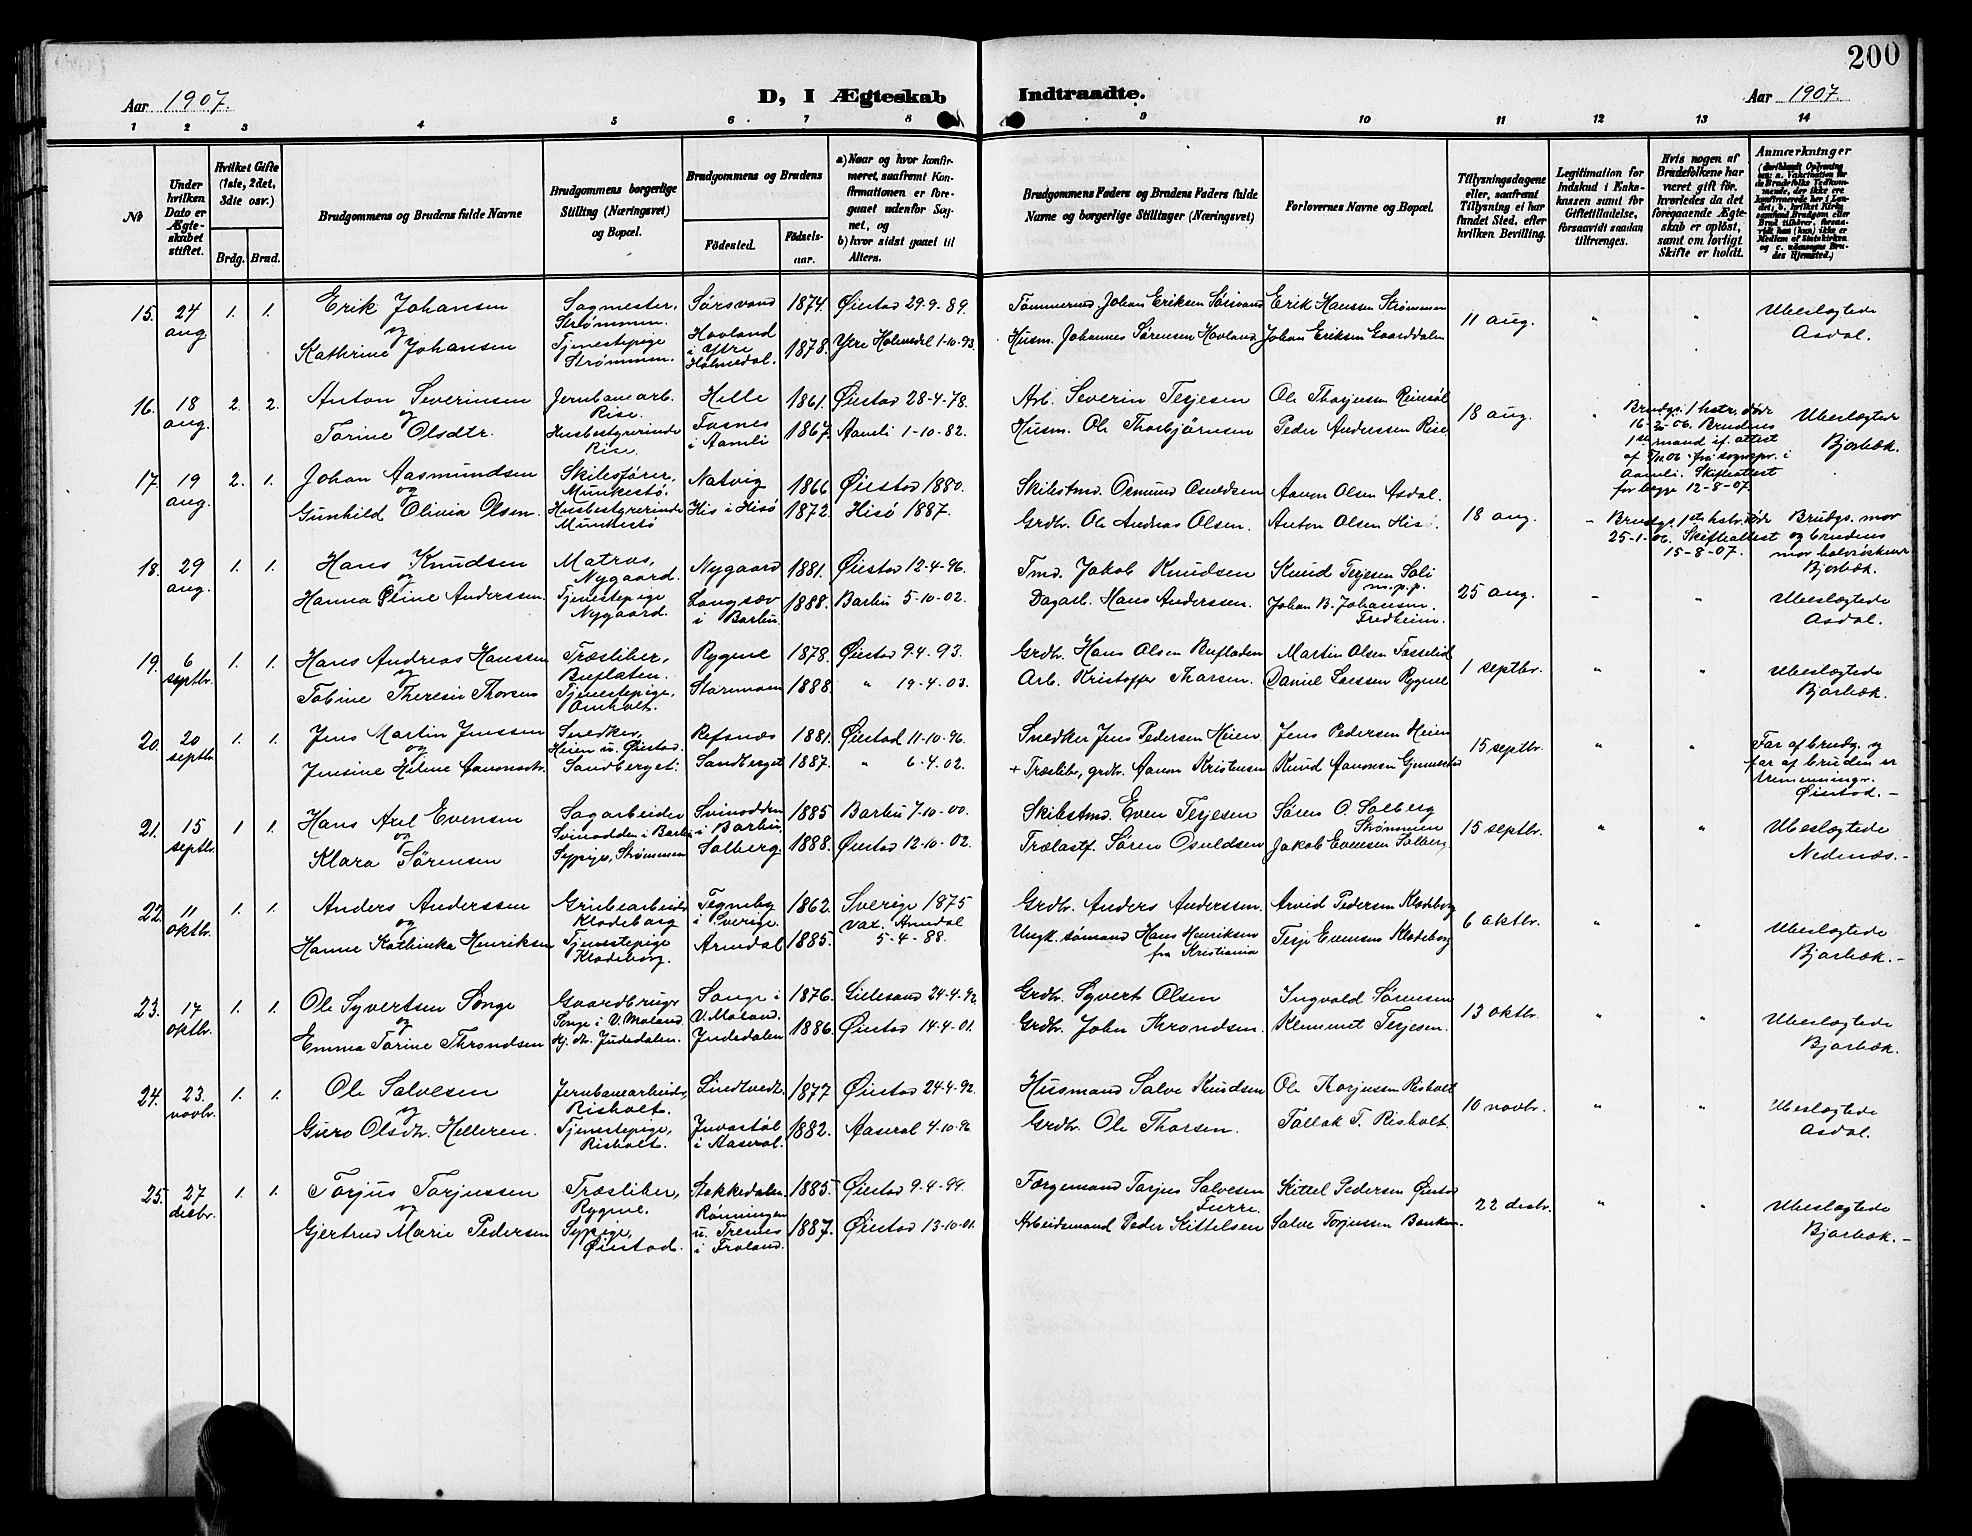 200
Aar 1907.
D, I Ægteskab Indtraadte.
Aar 1907.
1 2 3 4 5 6 7 8 9 10 11 12 13 14
No
Under hvilken Dato er Ægteskabet stiftet.
Hvilket Gifte (1ste, 2det, 3die osv.)
Brdg. Brud.
Brudgommens og Brudens fulde Navne
Brudgommens borgerlige Stilling (Næringsvei) og Bopæl.
Brudgommens og Brudens
Fødested.
Fødselsaar.
a) Naar og hvor konfirmeret, saafremt Konfirmationen er foregaaet udenfor Sognet, og
b) hvor sidst gaaet til Alters.
Brudgommens Faders og Brudens Faders fulde Navne og borgerlige Stillinger (Næringsvei)
Forlovernes Navne og Bopæl.
Tillysningsdagene eller, saafremt Tillysning ei har fundet Sted, efter hvilken Bevilling.
Legitimation for Indskud i Enkekassen samt for Giftetilladelse, forsaavidt saadan tiltrænges.
Hvis nogen af Brudefolkene har været gift før, hvorledes da det foregaaende Ægteskab er opløst, samt om lovligt Skifte er holdt.
Anmærkninger
15. 24 aug. 1. 1. Erik Johansen og Kathrine Johansen
Sagmester, Strømmen. Tjenestepige Strømmen.
Sørsvand 1874. Øiestad 29-9-89.
Hovland i Ytre Holmedal. 1878. Ytre Holmedal 1-10-93.
Tømmermd. Johan Eriksen Sørsvand Erik Hanssen Strømmen
Husm. Johannes Sørensen Hovland Johan Eriksen Gaarddalen
11 aug. " " Ubeslægtede Asdal.
16. 18 aug. 2. 2. Anton Severinsen og Torine Olsdtr.
Jernbanearb. Rise. Husbestyrerinde Rise.
Helle 1861. Øiestad 28-4-78.
Fosnes i Aamli 1867. Aamli 1-10-82.
Arb. Severin Terjesen Ole Thorjussen Reiersøl
Husm. Ole Thorbjørnsen Peder Anderssen Rise
18 aug. " Brudgs. 1 hstr. døde 16-2-06. Brudens 1ste mand if. attest af 5/11 06 fra sognepr. i Aamli. Skifteattest for begge 12-8-07. Ubeslægtede Bjorbæk.
17. 19 aug. 2. 1. Johan Aasmundsen og Gunhild Olivia Olsen.
Skibsfører, Munkestø. Husbestyrerinde Munkestø
Natvig 1866 Øiestad 1880.
His i Hisø 1872. Hisø 1887.
Skibstmd. Osmund Osuldsen Aanon Olsen Asdal.
Grdbr. Ole Andreas Olsen. Anton Olsen His.
18 aug. - Brudgs. 1ste hstr. døde 25-1-06. Skifteattest 15-8-07. Brudgs. mor og brudens mor halvsøskener Bjorbæk.
18. 29 aug. 1. 1. Hans Knudsen og Hanna Oline Anderssen.
Matros, Nygaard. Tjenestepige Nygaard.
Nygaard 1881. Øiestad 12-4-96.
Langsæv i Barbu. 1888. Barbu 5-10-02.
Tmd. Jakob Knudsen Knud Terjesen Soli m.p.p.
Dagarb. Hans Anderssen. Johan B. Johansen. Fredheim.
25 aug. - " Ubeslægtede Asdal.
19. 6 septbr. 1. 1. Hans Andreas Hanssen og Tobine Theresie Thorsen
Træsliber, Buflaten. Tjenestepige, Omholt.
Rygene 1878. Øiestad 9-4-93.
Stormoen 1888. " 19-4-03.
Grdbr. Hans Olsen Bufladen Martin Olsen Fosselid
Arb. Kristoffer Thorsen. Daniel Larssen Rygene
1 septbr. " " Ubeslægtede Bjorbæk.
20. 20 septbr. 1. 1. Jens Martin Jenssen og Jensine Helene Aanonsdtr.
Snedker, Heien u. Øiestad. Sandberget.
Refsnæs 1881. Øiestad 11-10-96.
Sandberget 1887. " 6-4-02.
Snedker Jens Pedersen Heien. Jens Pedersen Heien
+ Træslibr., grdbr. Aanon Kristensen Knud Aanonsen
15 septbr. " " Far af brudg. og far af bruden er tremenninger. Øiestad. -
21. 15 septbr. 1 1. Hans Axel Evensen og Klara Sørensen
Sagarbeider Svinodden i Barbu Sypige, Strømmen
Svinodden i Barbu. 1885 Barbu 7-10-00.
Solberg. 1888. Øiestad 12-10-02.
Skibstmd. Even Terjesen Søren O. Solberg Strømmen
Trælastf. Søren Osuldsen Jakob Evensen Solberg
15 septbr. " " Ubeslægtede Nedenæs. -
22. 11 oktbr. 1. 1. Anders Anderssen og Hanne Kathinka Henriksen
Grubearbeider Klodeborg Tjenestepige Klodeborg.
Tegneby i Sverige. 1862. Sverige 1875 vax.
Arendal 1885. Arendal 5-4-88.
Grdbr. Anders Anderssen. Arvid Pedersen Klodeborg
Ungk. sømand Hans Henriksen fra Kristiania Terje Evensen Klodeborg
6 oktbr. " " Ubeslægtede Bjorbæk. -
23. 17 oktbr. 1. 1. Ole Syvertsen Songe og Emma Torine Throndsen
Gaardbruger Songe i V. Moland. Hj. dtr. Judedalen.
Songe i V. Moland. 1876. Lillesand 24-4-92.
Judedalen 1886. Øiestad 14-4-01.
Grdbr. Syvert Olsen Ingvald Sørensen
Grdbr. John Throndsen. Klemmet Terjesen.
13 oktbr. " " Ubeslægtede Bjorbæk.
24. 23. novbr. 1. 1. Ole Salvesen og Guro Olsdtr. Helleren.
Jernbanearbeider, Risholt. Tjenestepige, Risholt.
Lindtvedt. 1877 Øiestad 24-4-92.
i Aaseral. 1882. Aaseral 4-10-96
Husmand Salve Knudsen Ole Thorjussen Risholt
Grdbr. Ole Thorsen. Tallak T. Risholt.
10 novbr. " " Ubeslægtede Asdal.
25. 27 decbr. 1. 1. Torjus Torjussen og Gjertrud Marie Pedersen
Træsliber, Rygene. Sypige, Øiestad.
Stokkedalen. 1885. Øiestad 9-4-99.
Rønningen u. Tresnes i Froland. 1887. Øiestad 13-10-01.
Færgemand Torjus Salvesen Furre. Kittel Pedersen Øiestad
Arbeidsmand Peder Kittelsen Salve Torjussen Banken.
22 decbr. " " Ubeslægtede Bjorbæk. -